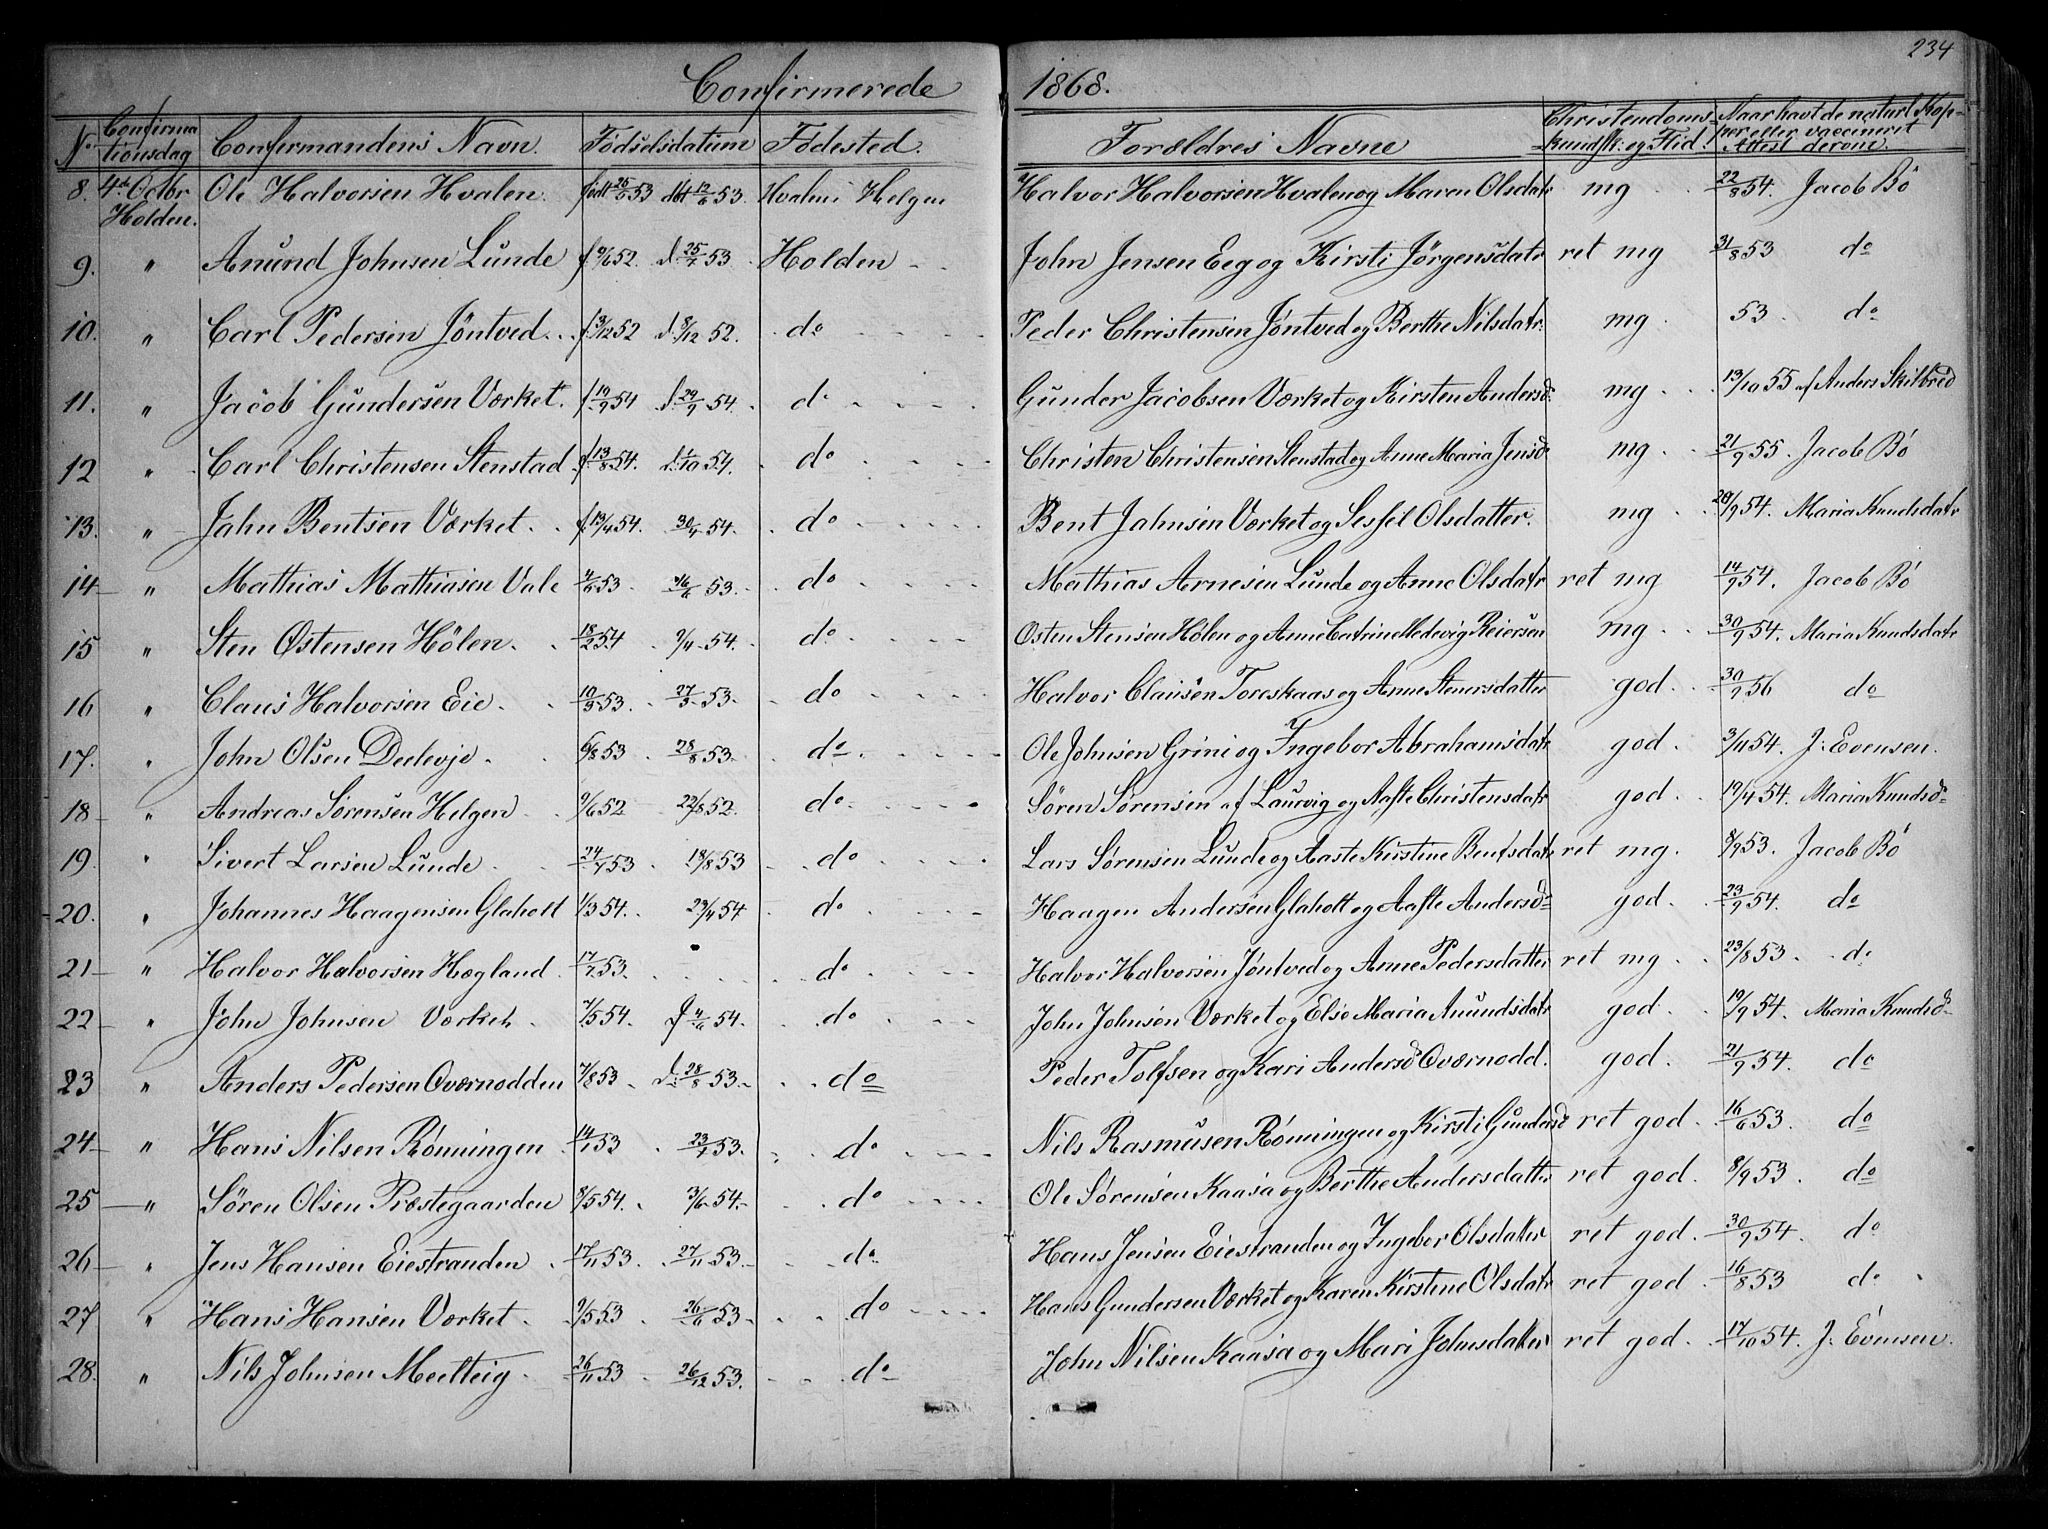 234
Confirmerede 1868.
No Confirmationsdag Confirmandens Navn. Fødselsdatum Fødested. Forældres Navne Christendoms-kundsk: og Flid. Naar havt de naturl. Kopper eller vaccinerit Attest derom.
8. 4de Octbr Holden. Ole Halvorsen Hvalen født 25/5 53 døbt 12/6 53. Hvalen i Helgen Halvor Halvorsen Hvalen og Maren Olsdatr mg 22/8 54. Jacob Bö
9. " Anund Johnsen Lunde 52. d. 25/7 53 Holden John Jensen Eeg og Kirsti Jörgensdatr ret mg 31/8 53 do
10. " Carl Pedersen Jöntved f. 3/12 52 d. 8/12 52. do Peder Christensen Jöntved og Berthe Nilsdatr. mg 53 do
11. " Jacob Gundersen Værket. f 19/9 54 d. 29/9 54. do Gunder Jacobsen Værket og Kirsten Andersd. mg 13/10 55 af Anders Skilbred
12 " Carl Christensen Stenstad f. 13/8 54. d. 1/10 54. do Christen Christensen Stenstad og Anne Maria Jensd. mg 21/9 55. Jacob Bö
13. " Jahn Bentsen Værket. f. 13/4 54. 30/4 54. do Bent Jahnsen Værket og Sessel Olsdatter. mg 20/9 54. Maria Knudsdatr
14 " Mathias Mathiasen Vale 53. 16/6 53. do Mathias Arnesen Lunde og Anne Olsdatr ret mg 14/9 54. Jacob Bö
15 " Sten Østensen Hölen. 18/2 54 9/4 54. do Østen Stensen Hölen og Anne Catrine Hedevig Reiersen mg 30/9 54. Maria Knudsdatr
16 " Claus Halvorsen Eie. 53. 27/3 53. do Halvor Clausen Toreskaas og Anne Stenersdatter god. 56 do
17. " John Olsen Deelevje 6/8 53 28/8 53. do Ole Johnsen Grini og Ingebor Abrahamsdatr god. 3/11 54. J. Evensen.
18 " Andreas Sørensen Helgen 9/6 52 22/8 52. do Sören Sørensen af Laurvig og Aaste Christensdatr god. 19/4 54. Maria Knudsd.
19. " Sivert Larsen Lunde. 24/7 53 18/8 53 do Lars Sørensen Lunde og Aaste Kirstine Bentsdatr ret mg. 8/9 53. Jacob Bö
20. " Johannes Haagensen Glaholt 1/3 54. 23/4 54 do Haagen Andersen Glaholt og Aaste Andersd. god. 23/9 54. do
21 " Halvor Halvorsen Hægland. 17/7 53. do Halvor Halvorsen Jöntved og Anne Pedersdatter ret mg 23/8 53. do
22 " John Johnsen Værket. 7/5 54. 54. do John Johnsen Værket og Else Maria Anundsdatr god. 19/9 54. Maria Knudsd.
23 " Anders Pedersen Overnodden 7/8 53 d. 28/8 53. do Peder Tolfsen og Kari Andersd Overnodd. god. 21/9 54. do
24 " Hans Nilsen Rönningen 14/1 53 53. do Nils Rasmusen Rönningen og Kirsti Gundersd ret god. 16/6 53. do
25 " Sören Olsen Præstegaarden 8/5 54. 3/6 54. do Ole Sørensen Kaasa og Berthe Andersdatter ret god. 8/9 53. do
26 " Jens Hansen Eiestranden 17/11 53 27/11 53. do Hans Jensen Eiestranden og Ingebor Olsdatter ret god. 30/9 54. do
27 " Hans Hansen Værket. 9/5 53 26/6 53 do Hans Gundersen Værket og Karen Kirstine Olsdatr ret god. 16/8 53 do
28. " Nils Johnsen Meelteig. 26/11 53 26/12 53. do John Nilsen Kaasa og Mari Johnsdatter ret god. 17/10 54. J. Evensen.